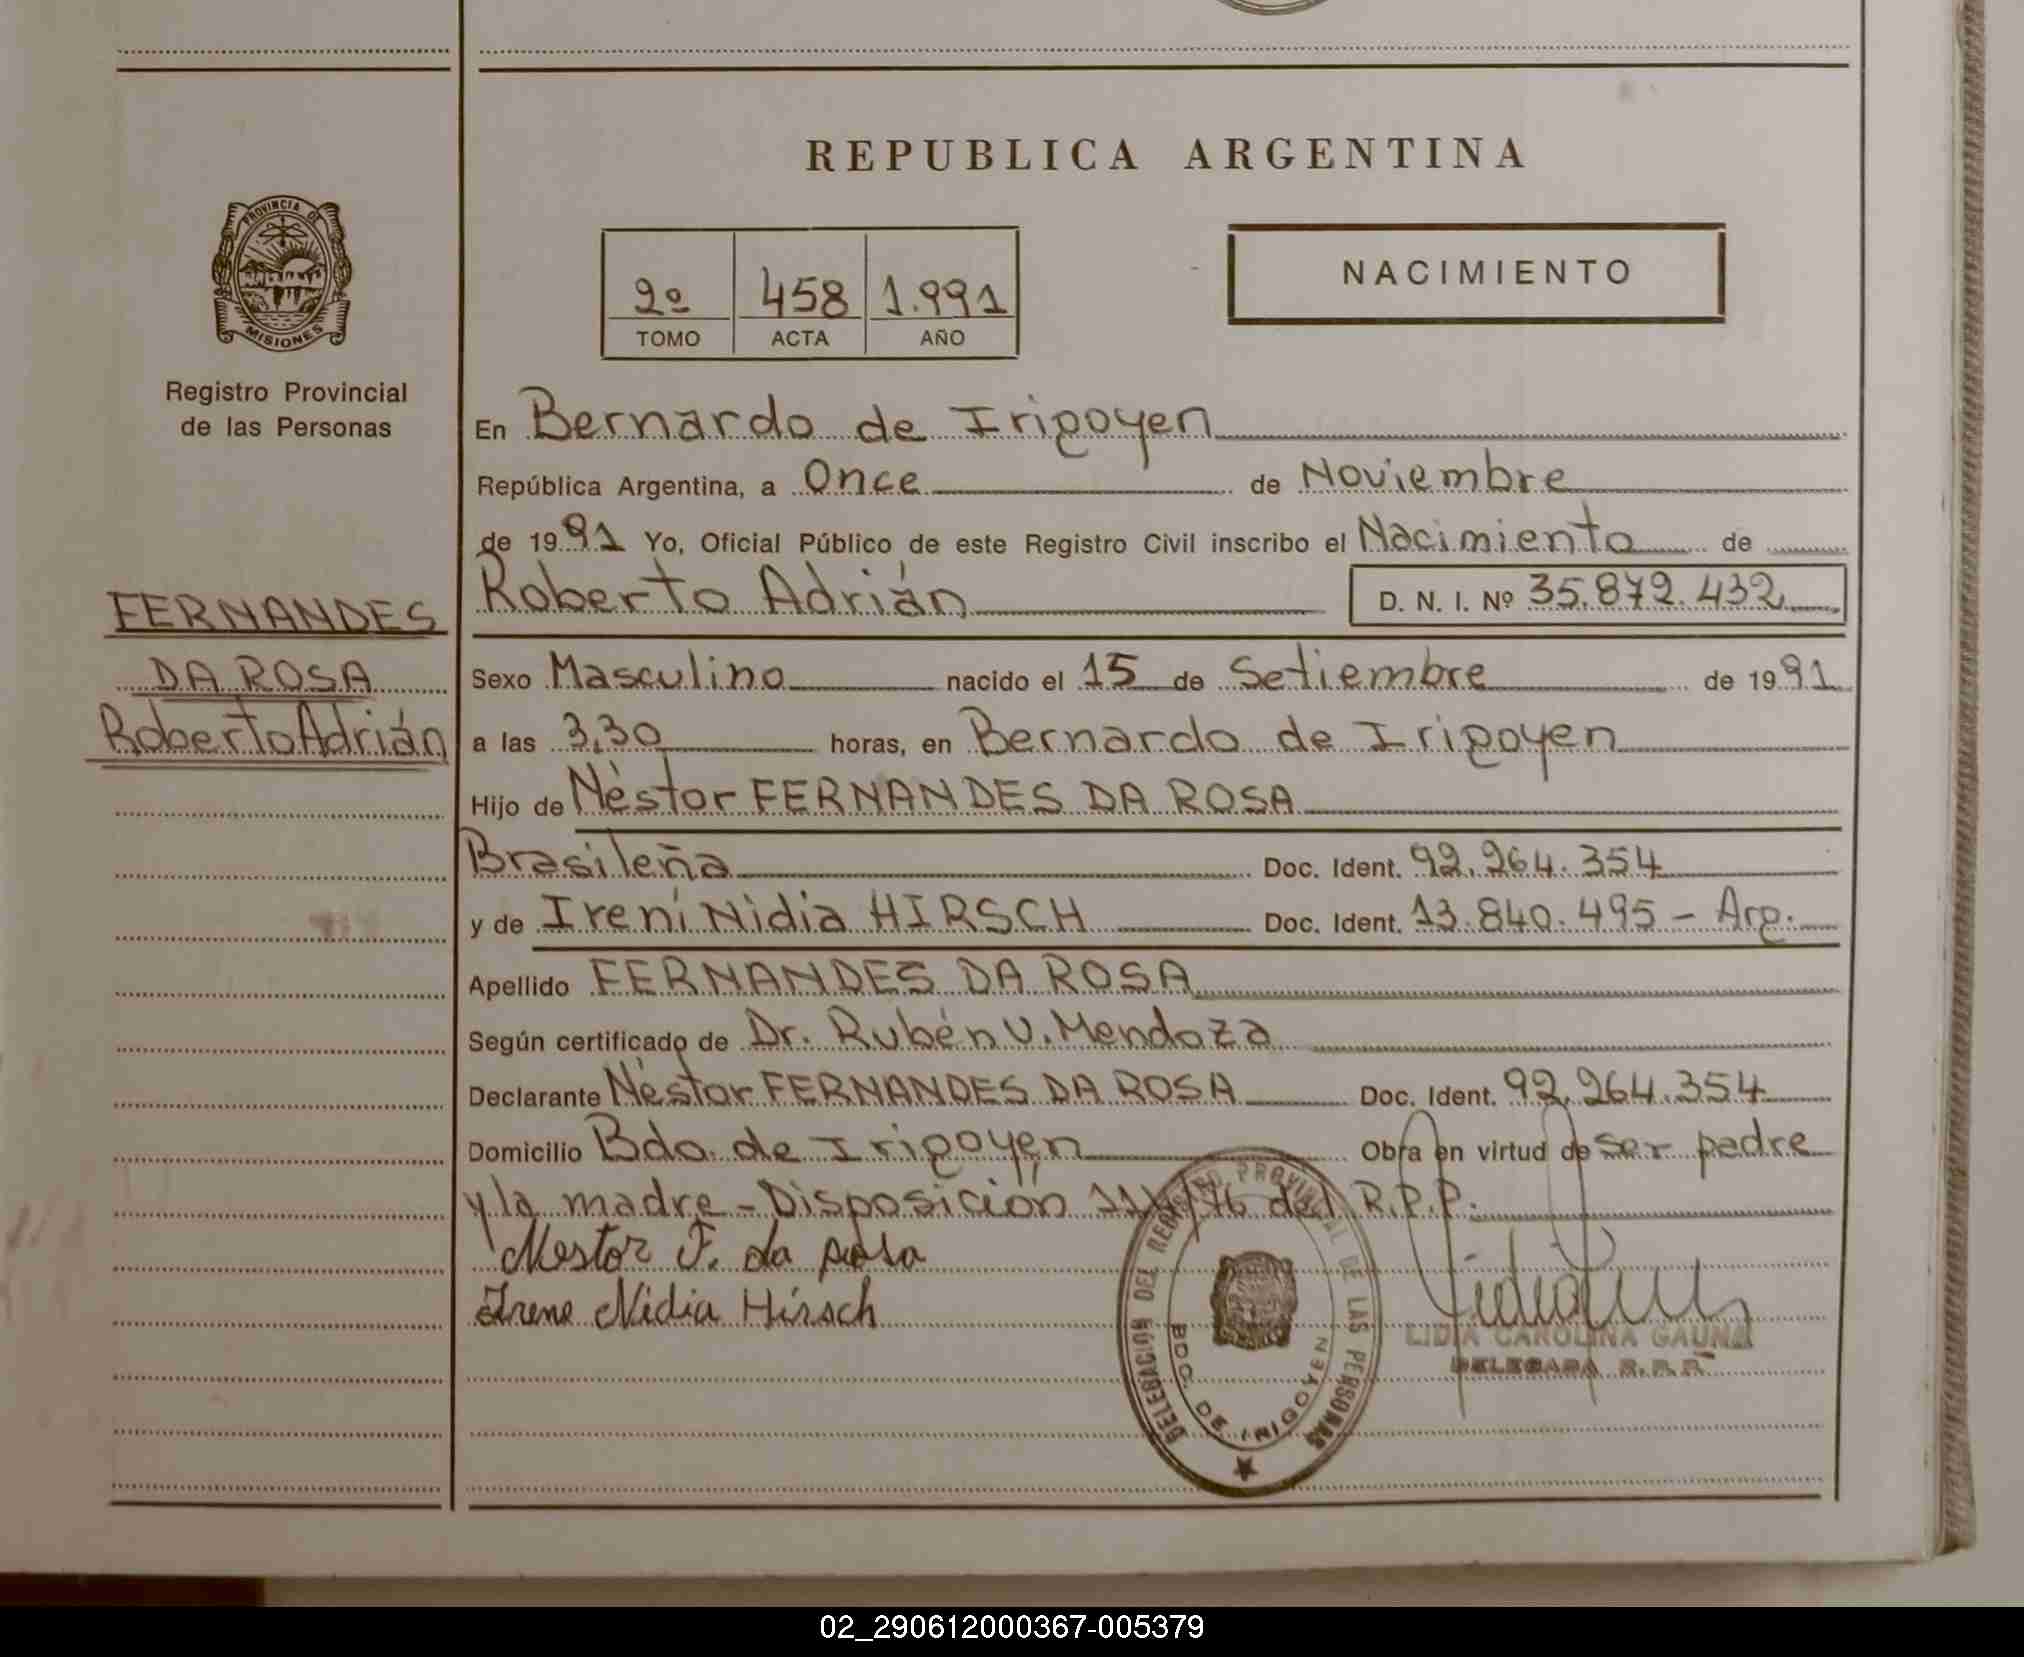 REPUBLICA ARGENTINA
PROVINCIA DE
MISIONES
Registro Provincial
de las Personas
2º 458 1.991
TOMO ACTA AÑO
NACIMIENTO
En Bernardo de Irigoyen
República Argentina, a Once de Noviembre
de 1991 Yo, Oficial Público de este Registro Civil inscribo el Nacimiento de
Roberto Adrián D. N. I. Nº 35.872.432
FERNANDES
DA ROSA
Roberto Adrián
Sexo Masculino nacido el 15 de Setiembre de 1991
a las 3,30 horas, en Bernardo de Irigoyen
Hijo de Néstor FERNANDES DA ROSA
Brasileña Doc. Ident. 92.264.354
y de Irení Nidia HIRSCH Doc. Ident. 13.840.495 - Arg.
Apellido FERNANDES DA ROSA
Según certificado de Dr. Rubén V. Mendoza
Declarante Néstor FERNANDES DA ROSA Doc. Ident. 92.264.354
Domicilio Bdo. de Irigoyen Obra en virtud de ser padre
y la madre - Disposición del R.P.P.
Nestor F. da rosa
Irene Nidia Hirsch
DELEGACION DEL REGISTRO PROVINCIAL DE LAS PERSONAS
BDO. DE IRIGOYEN
LIDIA CAROLINA GAUNA
DELEGADA R.P.P.
02_290612000367-005379